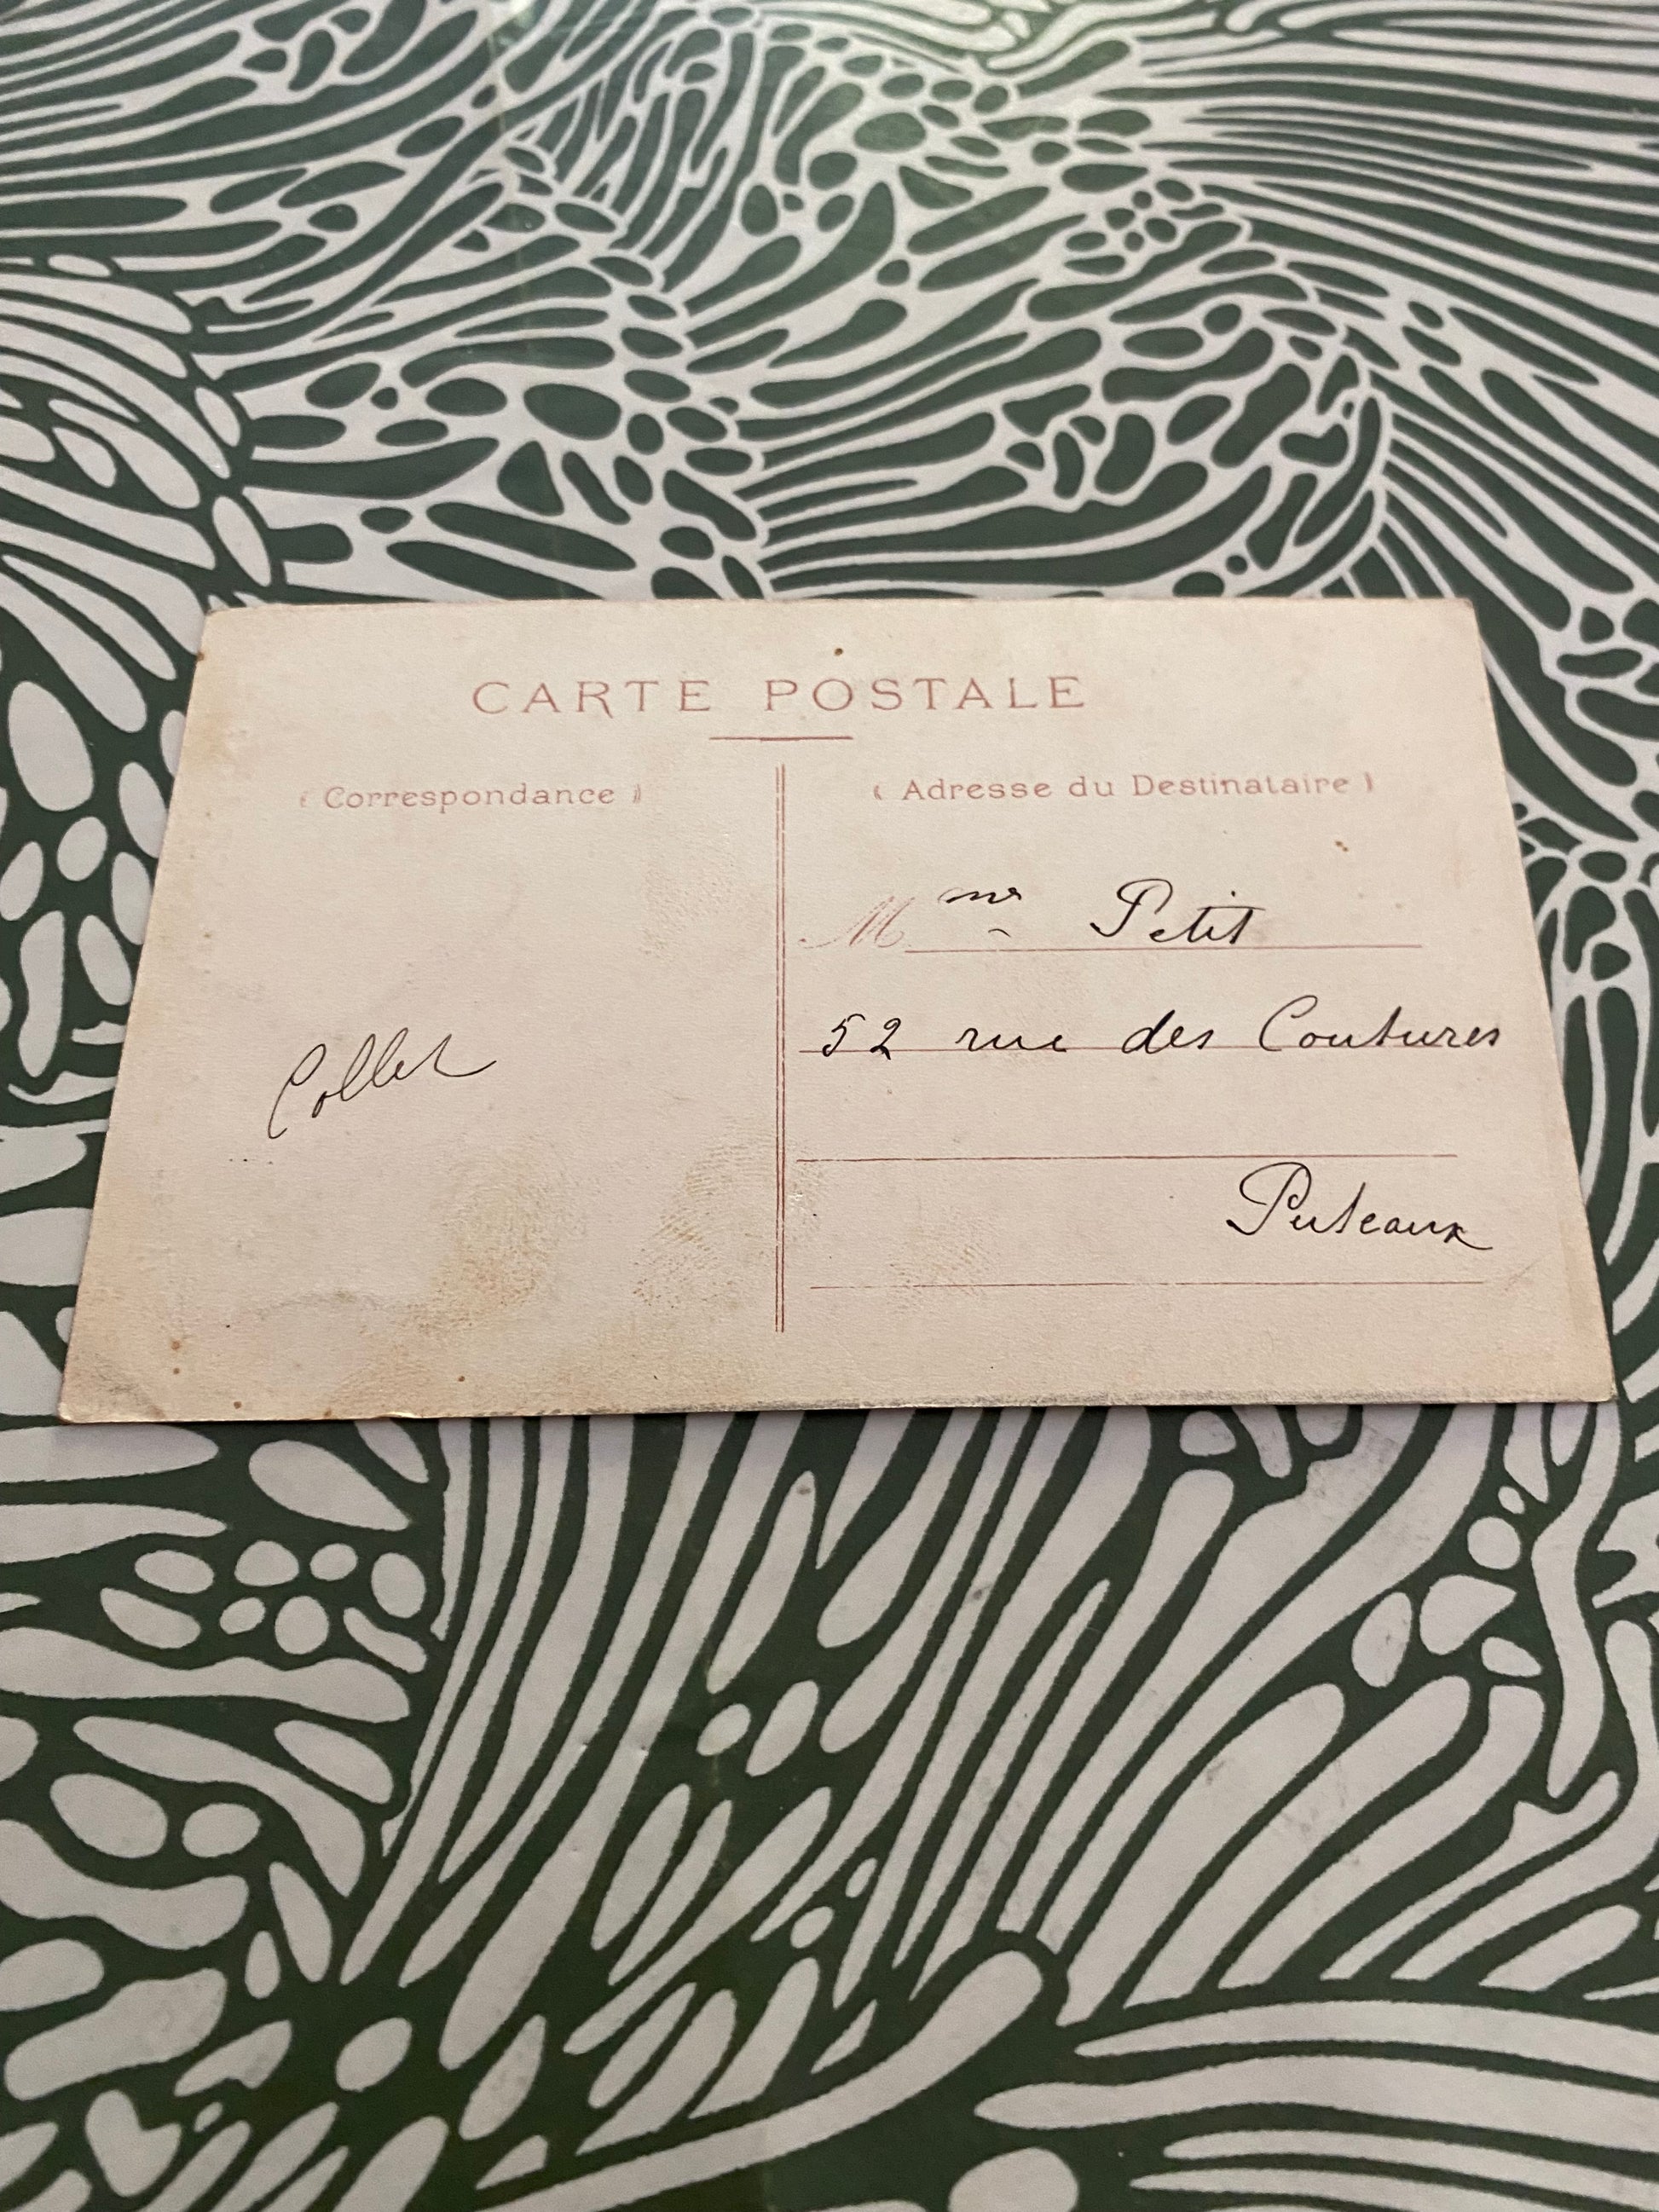 CARTE POSTALE
( Correspondance )
Collet
( Adresse du Destinataire )
Mme Petit
52 rue des Coutures
Puteaux